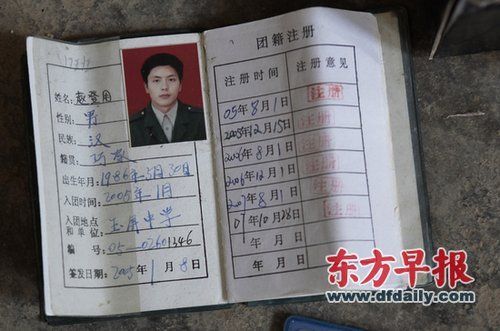 姓名: 赵登用
性别: 男
民族: 汉
籍贯: 巧家
出生年月: 1986年3月30日
入团时间: 2005年1月
入团地点
和单位: 玉屏中学
编 号 05-02601346
签发日期: 2005年1月8日
团籍注册
注册时间 注册意见
05年8月1日 注册
2005年12月15日 注册
2006年8月1日 注册
2006年12月1日 注册
2007年8月1日 注册
07年10月28日 注册
年 月 日
年 月 日
东方早报
www.dfdaily.com